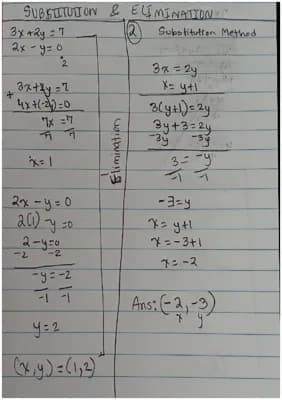 SUBSTITUTION & ELIMINATION
3x+2y=7
2x-y=0
2
3x+2y=7
+ 4x+(-2y)=0
7x =7
7 7
x=1
2x-y=0
2(1)-y=0
2-y=0
-2 -2
-y=-2
-1 -1
y=2
(x,y)=(1,2)
Elimination
2 Substitution Method
3x=2y
x=y+1
3(y+1)=2y
3y+3=2y
-3y -3y
3=-y
-1 -1
-3=y
x=y+1
x=-3+1
x=-2
Ans: (-2,-3)
x y